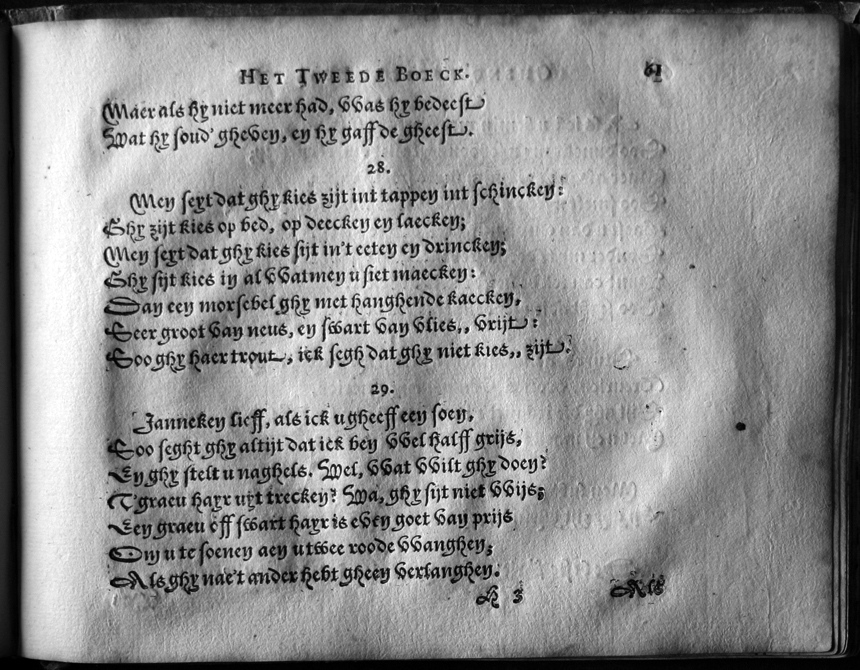 HET TWEEDE BOECK. 61
Maer als hy niet meer had, was hy bedeest
Wat hy soud' gheven, en hy gaff de gheest.
28.
Men seyt dat ghy kies zijt int tappen int schincken:
Ghy zijt kies op bed, op deecken en laecken;
Men seyt dat ghy kies sijt in't eeten en drincken;
Ghy sijt kies in al watmen u siet maecken:
Dan een morsebel ghy met hanghende kaecken,
Seer groot van neus, en swart van vlies,, vrijt:
Soo ghy haer trout, ick segh dat ghy niet kies,, zijt.
29.
Janneken lieff, als ick u gheeff een soen,
Soo seght ghy altijt dat ick ben wel halff grijs,
En ghy stelt u naghels. Wel, wat wilt ghy doen?
T'graeu hayr uyt trecken? Wa, ghy sijt niet wijs;
Een graeu off swart hayr is even goet van prijs
Om u te soenen aen u twee roode wanghen;
Als ghy nae't ander hebt gheen verlanghen.
H 3 Als